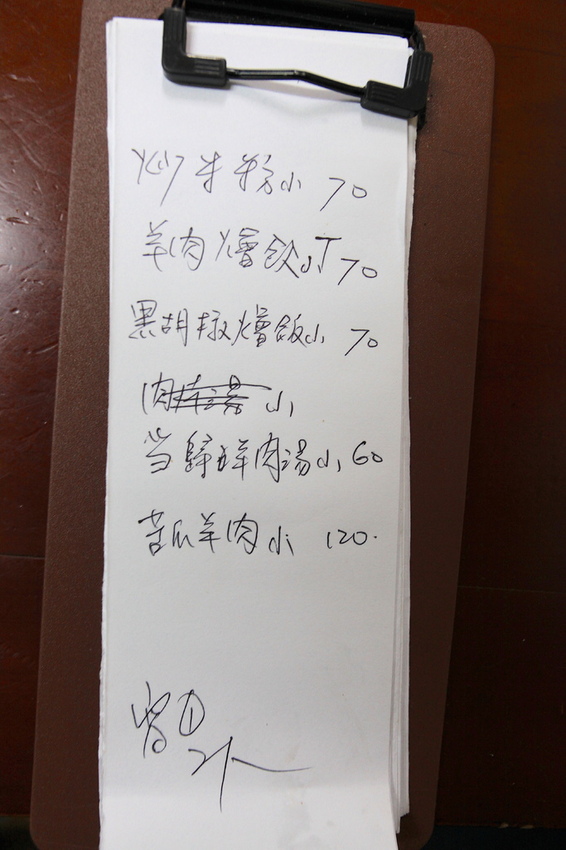 炒米粉小 70
羊肉燴飯小 70
黑胡椒燴飯小 70
肉 小
当歸羊肉湯小 60
苦瓜羊肉小 120.